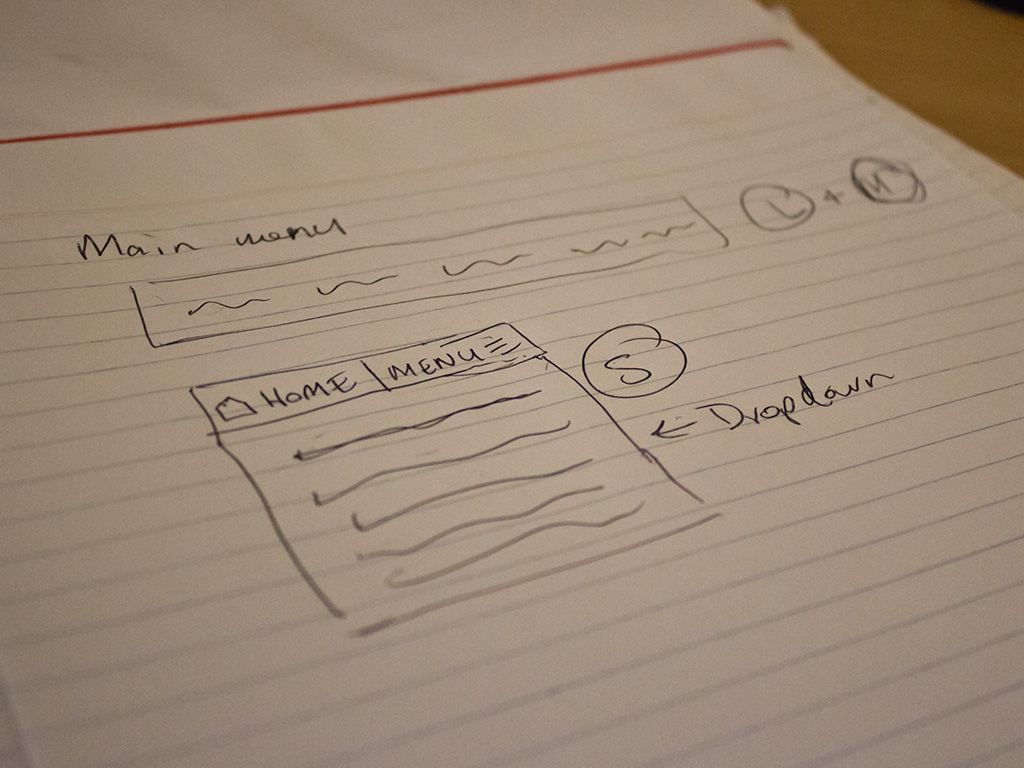 Main menu
L + M
HOME MENU
S
Dropdown